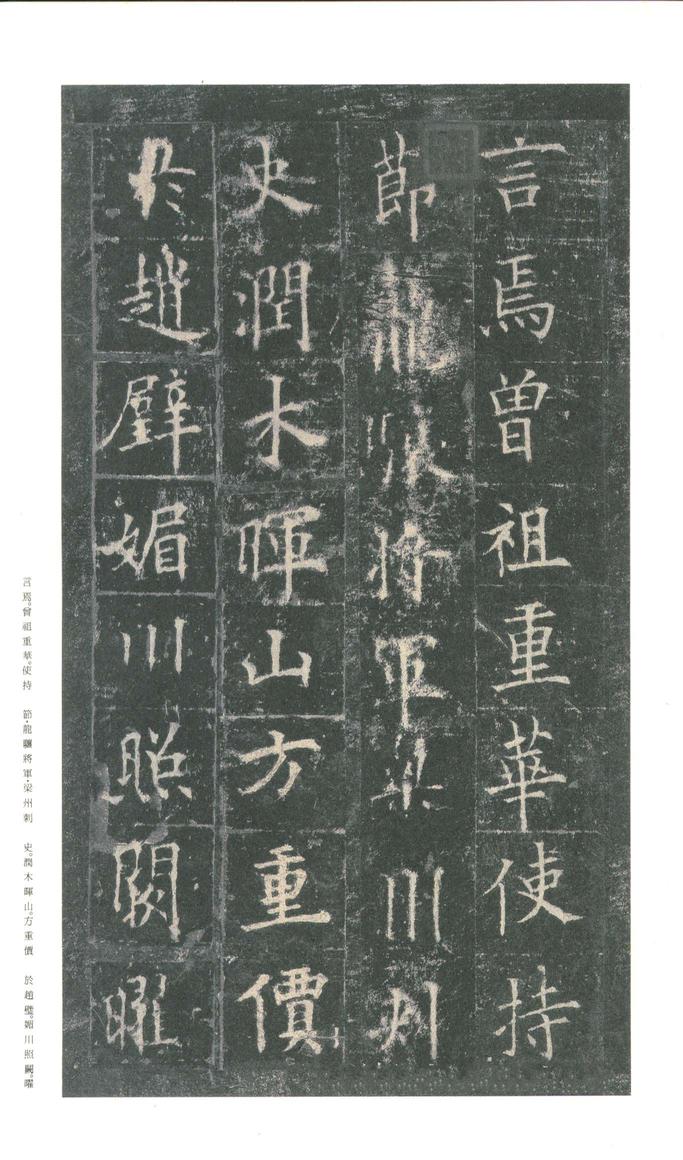 言焉曾祖重華使持
節龍驤將軍梁州刺
史潤木暉山方重價
於趙璧媚川照闕曜
言焉。曾祖重華。使持 節·龍驤將軍·梁州刺 史。潤木暉山。方重價 於趙璧。媚川照闕。曜